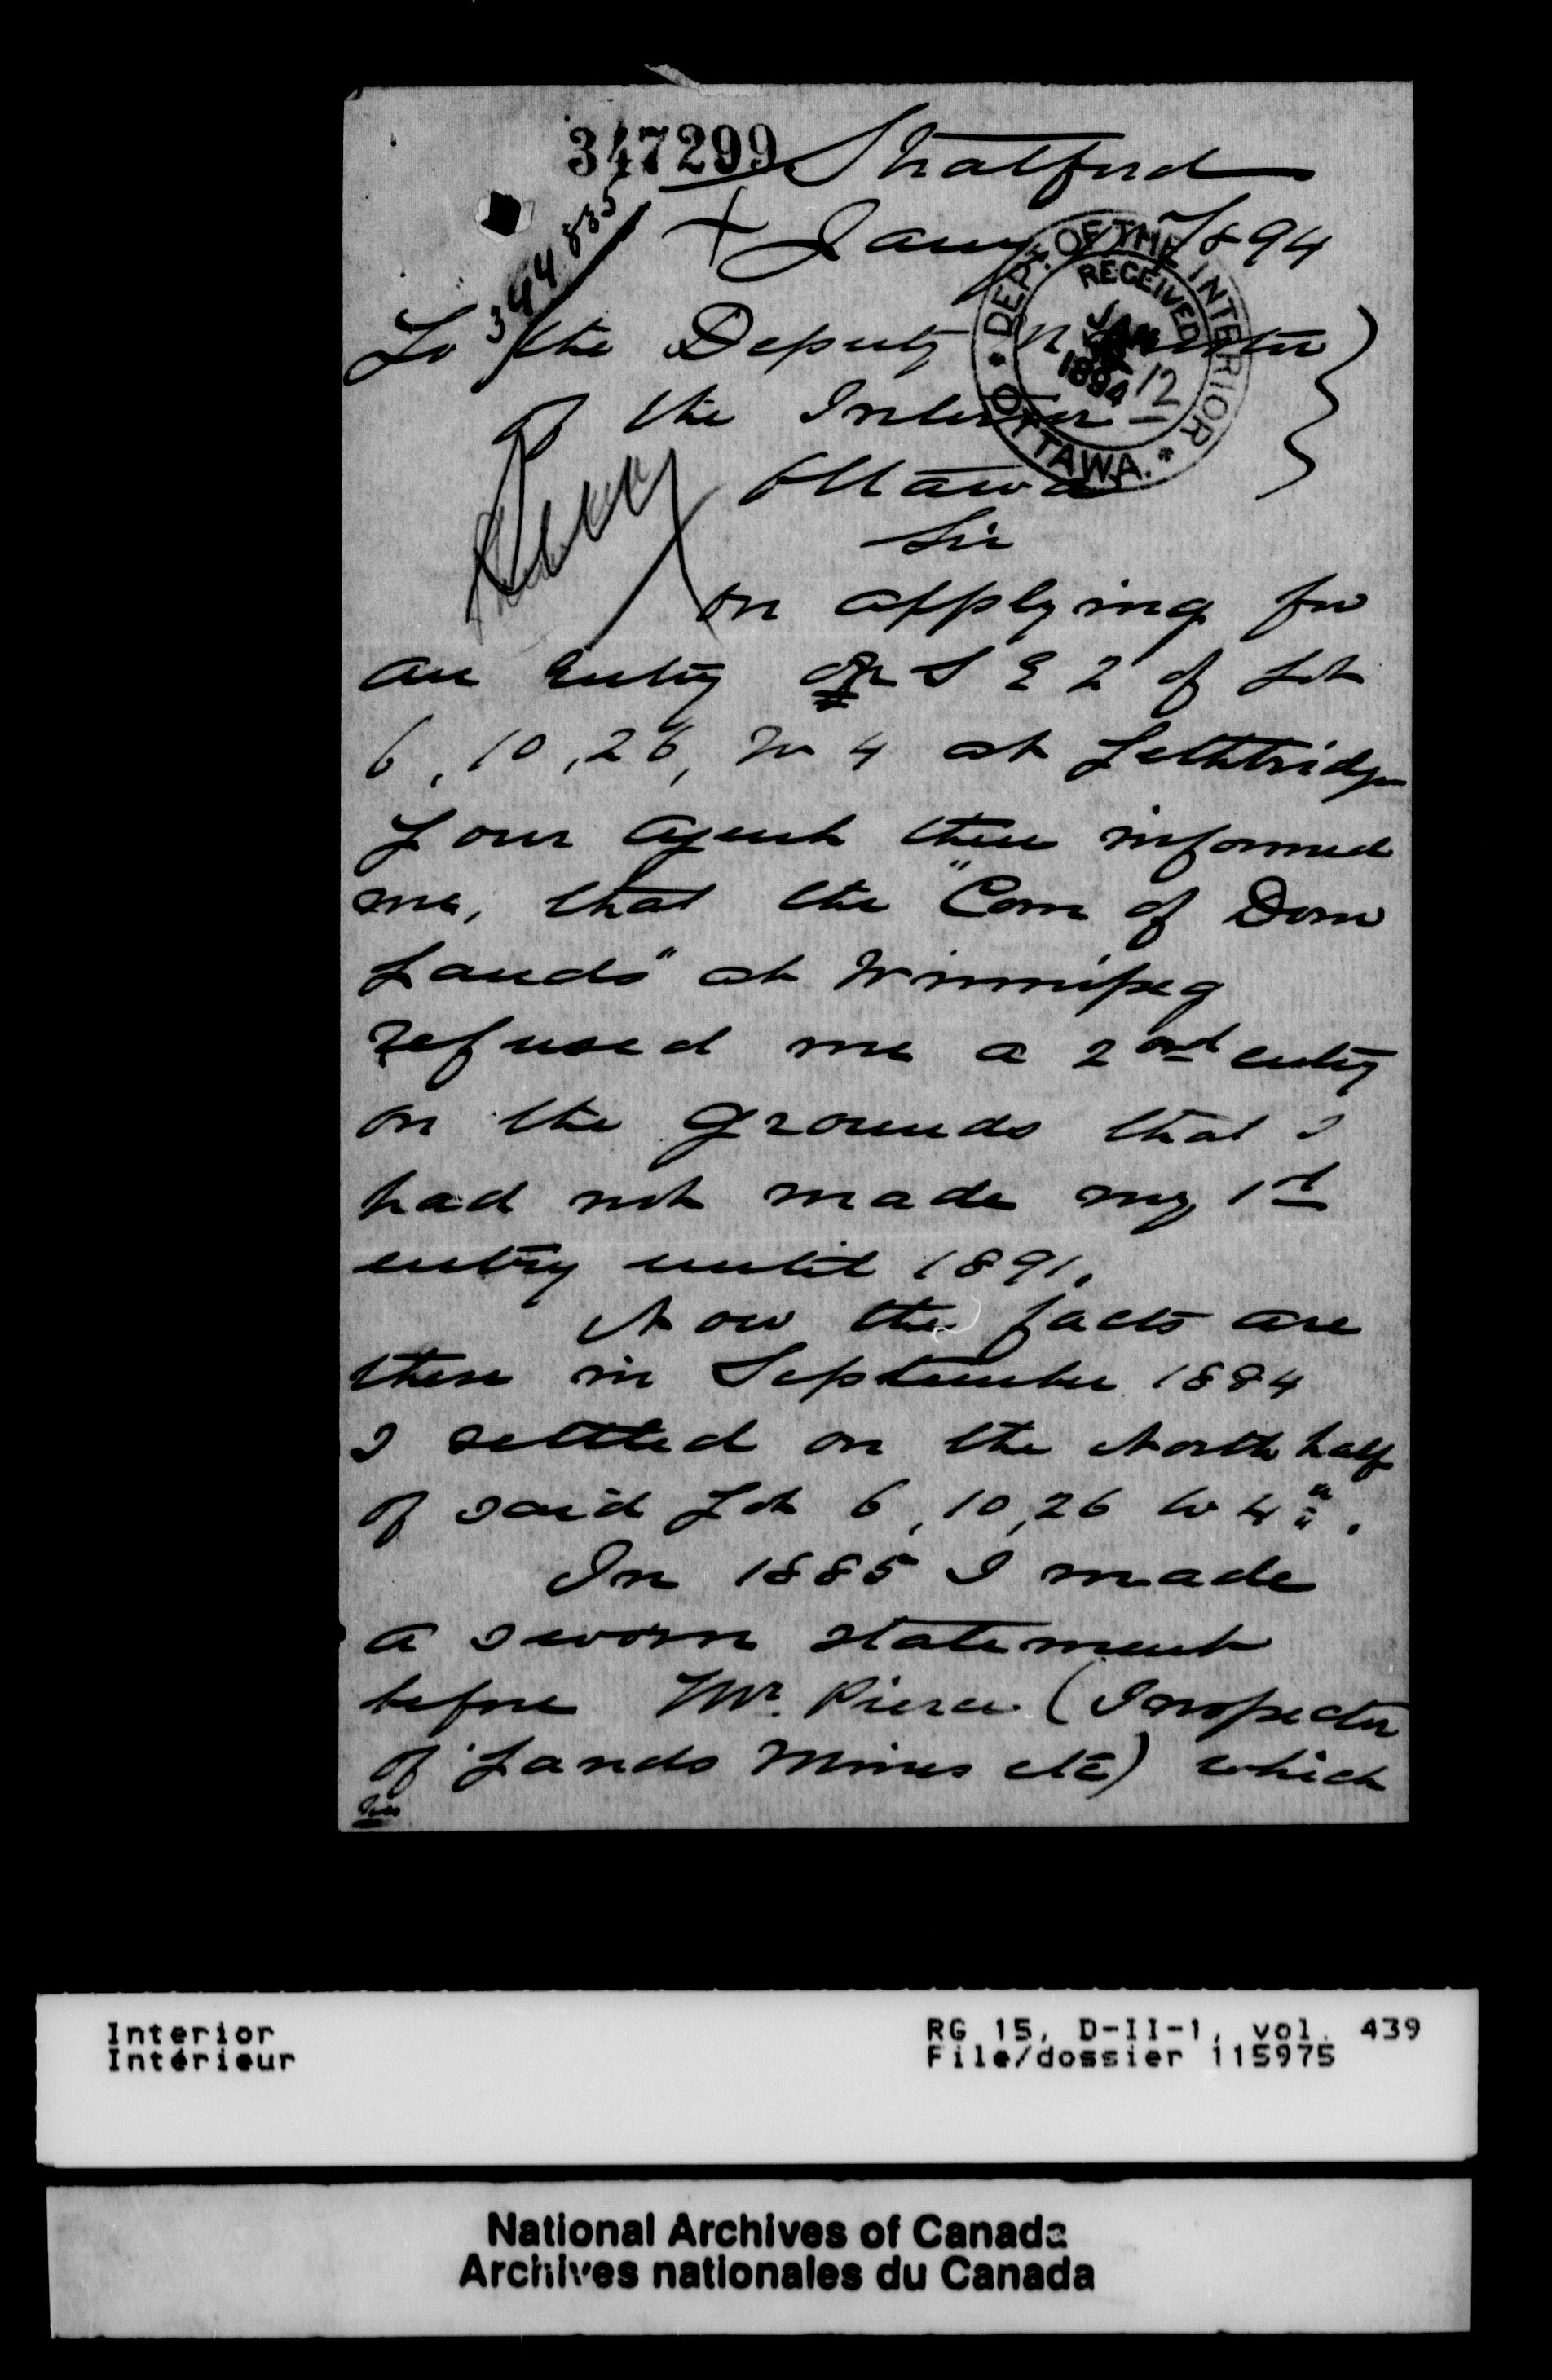 347299
Stratford
Jany 1894
344835
DEPT. OF THE INTERIOR
RECEIVED
JAN 12
1894
OTTAWA.
To the Deputy Minister
of the Interior
Ottawa
Sir
On applying for
an Entry on S E 2 of Lot
6, 10, 26, W 4 at Lethbridge
Your Agent there informed
me, that the "Com of Dom
Lands" at Winnipeg
refused me a 2nd entry
on the grounds that I
had not made my 1st
entry until 1891.
Now the facts are
these in September 1884
I settled on the North half
of said Lot 6, 10, 26 W 4".
In 1885 I made
a sworn statement
before Mr. Pierce (Inspector
of Lands Mines etc) which
Interior
Intérieur
RG 15, D-II-1, vol. 439
File/dossier 115975
National Archives of Canada
Archives nationales du Canada